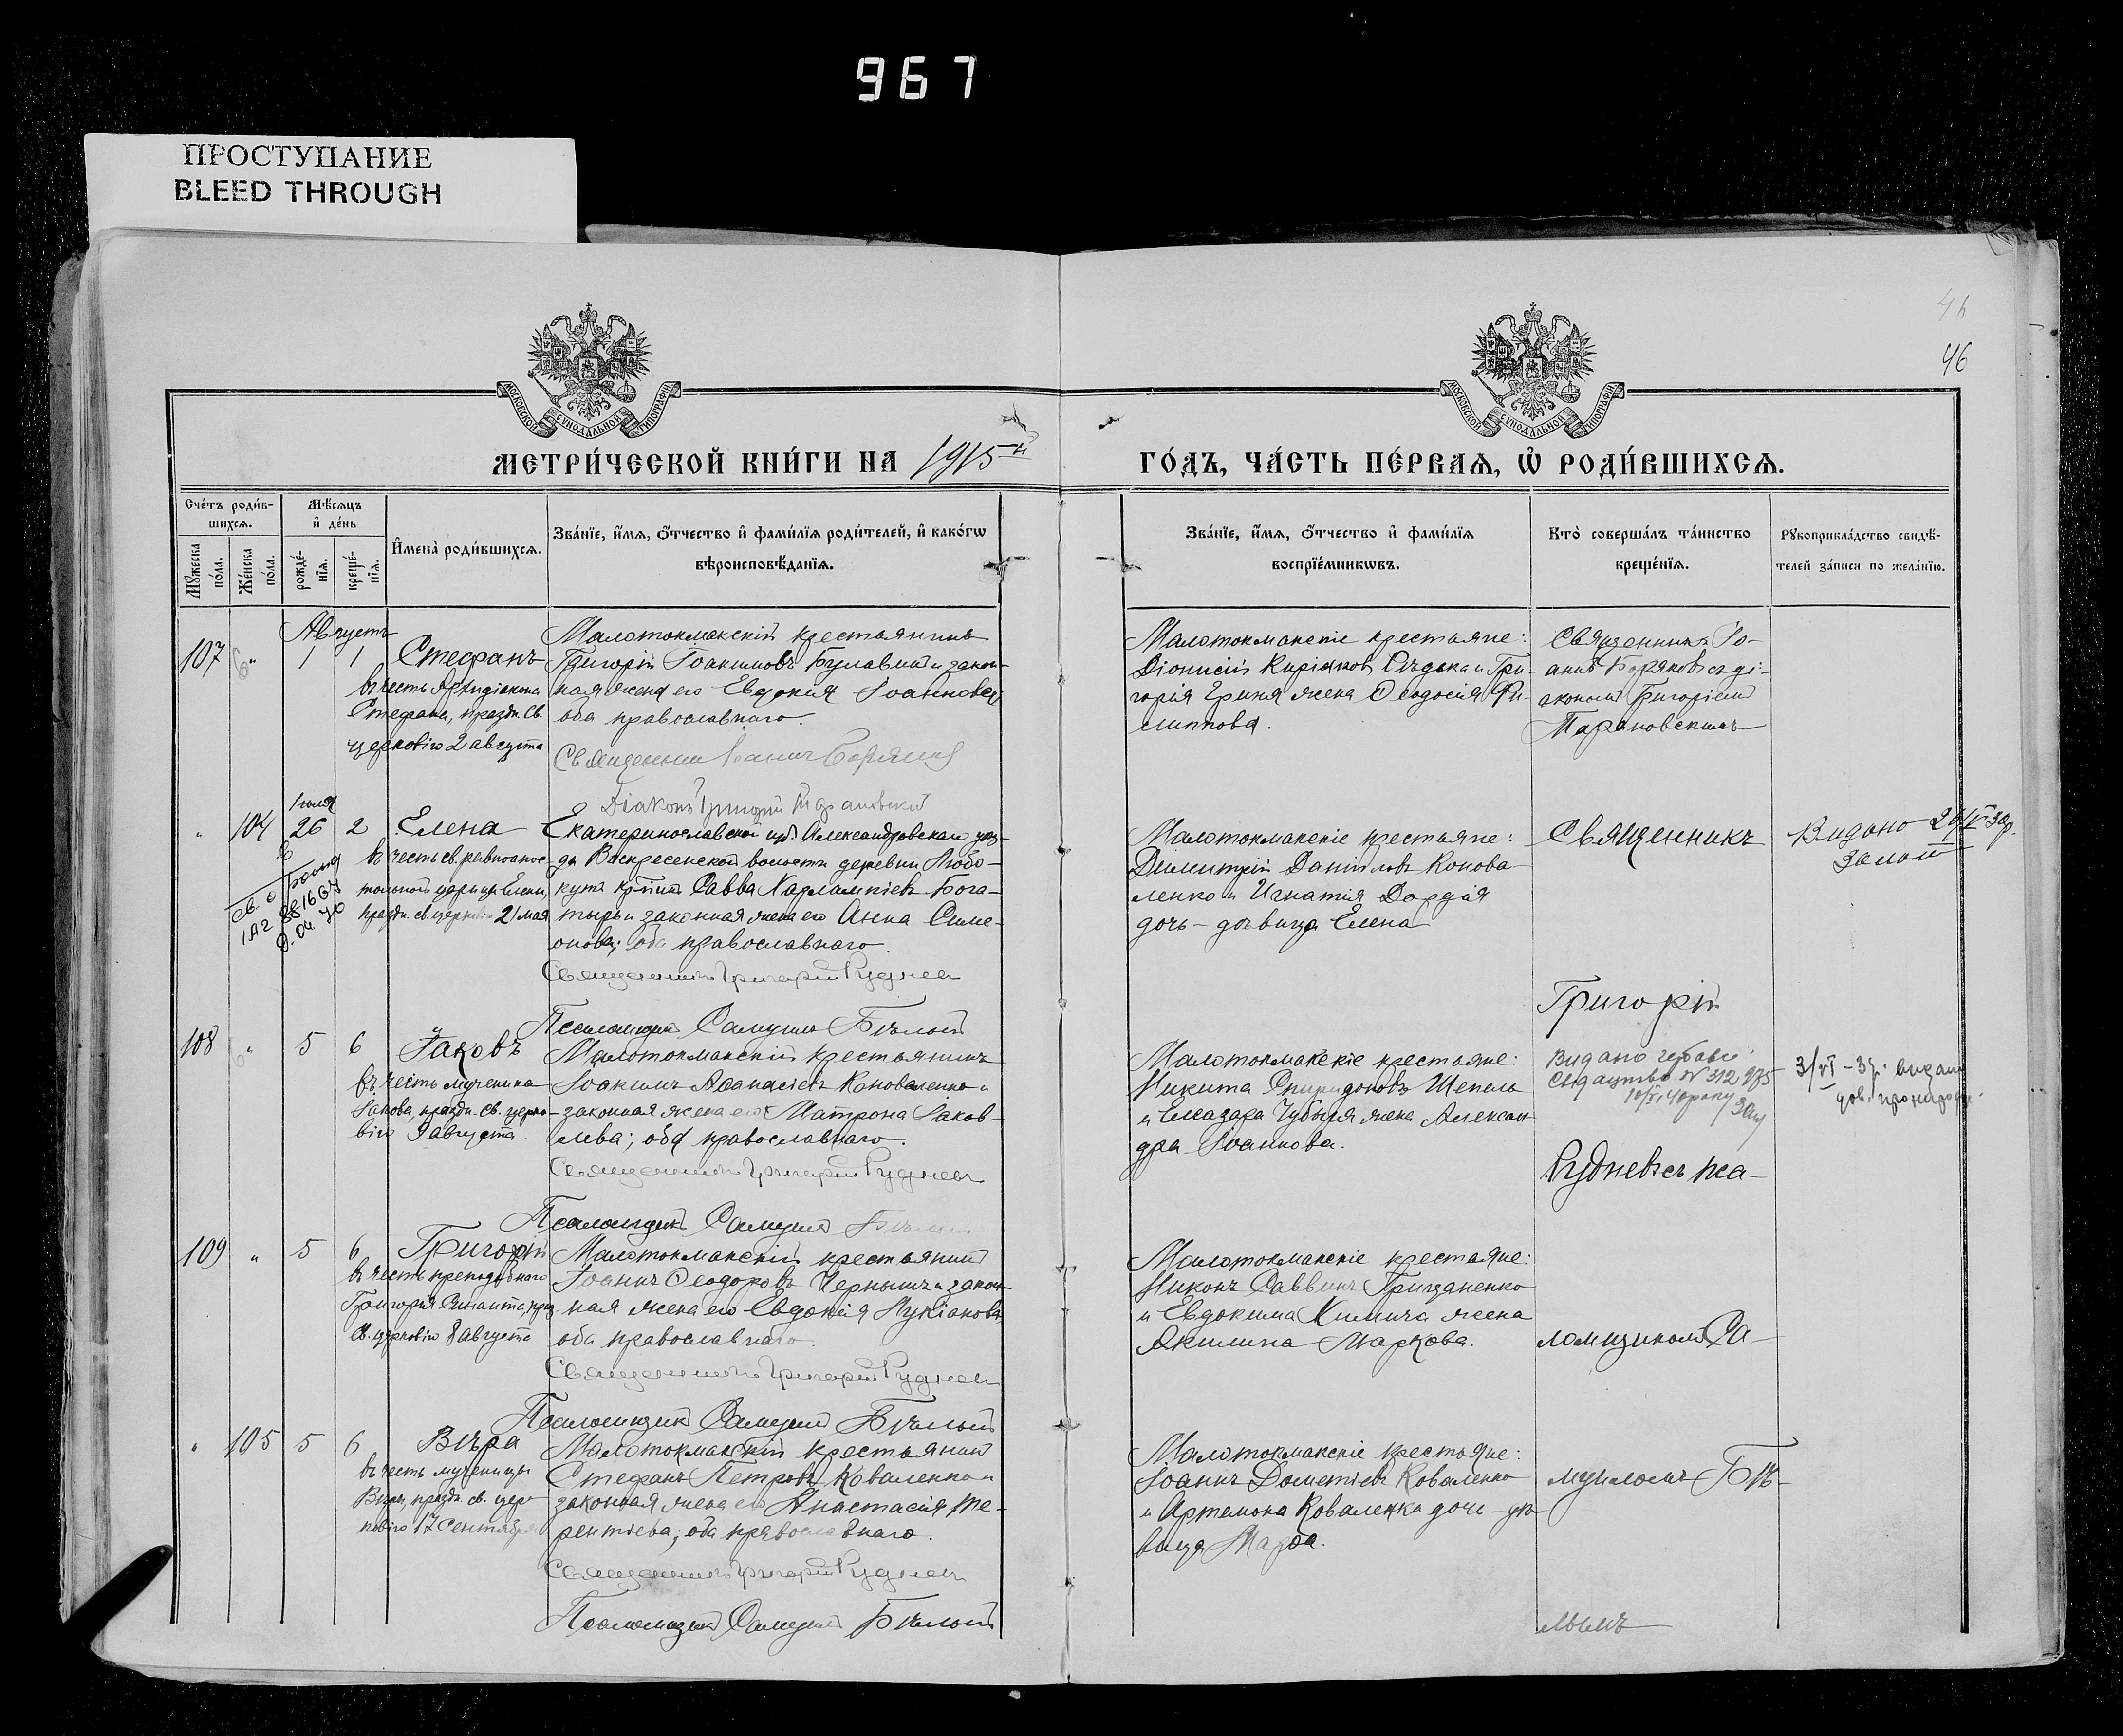 967
ПРОСТУПАНИЕ
BLEED THROUGH
46
МОСКОВСКОЙ СѴНОДАЛЬНОЙ ТИПОГРАФІИ
МОСКОВСКОЙ СѴНОДАЛЬНОЙ ТИПОГРАФІИ
МЕТРИ́ЧЕСКОЙ КНИ́ГИ НА 1915й ГО́ДЪ, ЧА́СТЬ ПЕ́РВАѦ, Ѽ РОДИ́ВШИХСѦ.
Сче́тъ роди́в-
шихсѧ.
Мꙋ́жеска по́ла.
Же́нска по́ла.
Мѣ́сѧцъ
и҆ де́нь
рожде́-
нїѧ.
креще́-
нїѧ.
И҆мена̀ роди́вшихсѧ.
Зва́нїе, и҆́мѧ, ѻ҆́тчество и҆ фами́лїѧ роди́телей, и҆ како́гѡ
вѣроисповѣ́данїѧ.
Зва́нїе, и҆́мѧ, ѻ҆́тчество и҆ фами́лїѧ
воспрїе́мникѡвъ.
Кто̀ соверша́лъ та́инство
креще́нїѧ.
Рꙋкоприкла́дство свидѣ́-
телей за́писи по жела́нїю.
Августъ
107 " 1 1 Стефанъ
въ честь Архидіакона
Стефана, праздн. Св.
церковію 2 августа
Малотокмакскій крестьянинъ
Григорій Іоакимовъ Булавин и закон-
ная жена его Евдокія Іоаннова,
оба православнаго.
Священник Іоаннъ Боряков
Діаконъ Григорій Тарановскій
Малотокмакскіе крестьяне:
Діонисій Киріаковъ и Гри-
горія жена Ѳеодосія Фи-
липпова.
Священникъ Іо-
аннъ Боряковъ съ ді-
акономъ Григоріемъ
Тарановскимъ
Іюля
" 104 26 2 Елена
въ честь св. равноапос-
тольной царицы Елены,
праздн. св. церковію 21 мая
Екатеринославской губ. Александровскаго уѣз-
да Воскресенской волости деревни Любо-
кута Савва Харлампіевъ Бога-
тырь и законная жена его Анна Симе-
онова; оба православнаго.
Священникъ Григорій Рудневъ
Псаломщикъ Самуилъ Бѣлый
Малотокмакскіе крестьяне:
Димитрій Даніиловъ Конова
ленко и Игнатія Дордія
дочь - дѣвица Елена
Священникъ
Видано
Григорій
108 " 5 6 Іаковъ
въ честь мученика
Іакова, праздн. св. церко-
вію 9 августа.
Малотокмакскій крестьянинъ
Іоакимъ Аѳанасіевъ Коноваленко и
законная жена его Матрона Іаков-
лева; оба православнаго.
Священникъ Григорій Рудневъ
Псаломщикъ Самуилъ Бѣлый
Малотокмакскіе крестьяне:
Никита Спиридоновъ Шепель
и Елеазара жена Алексан
дра Іоаннова.
Видано
№ 312
Рудневъ съ пса-
109 " 5 6 Григорій
въ честь преподобнаго
Григорія Синаита, празд.
св. церковію 8 августа
Малотокмакскій крестьянинъ
Іоаннъ Ѳеодоровъ Чернышъ и закон-
ная жена его Евдокія Лукіанова
оба православнаго.
Священникъ Григорій Рудневъ
Псаломщикъ Самуилъ Бѣлый
Малотокмакскіе крестьяне:
Никонъ Саввинъ Грицаненко
и Евдокима жена
Акилина Маркова.
ломщикомъ Са-
" 105 5 6 Вѣра
въ честь мученицы
Вѣры, праздн. св. цер-
ковію 17 Сентября
Малотокмакскій крестьянинъ
Стефанъ Петровъ Коваленко и
законная жена его Анастасія Те-
рентіева; оба православнаго.
Священникъ Григорій Рудневъ
Псаломщикъ Самуилъ Бѣлый
Малотокмакскіе крестьяне:
Іоаннъ Дометіевъ Коваленко
и Артемона Коваленка дочь - дѣ-
вица Марѳа.
муиломъ Бѣ-
лымъ